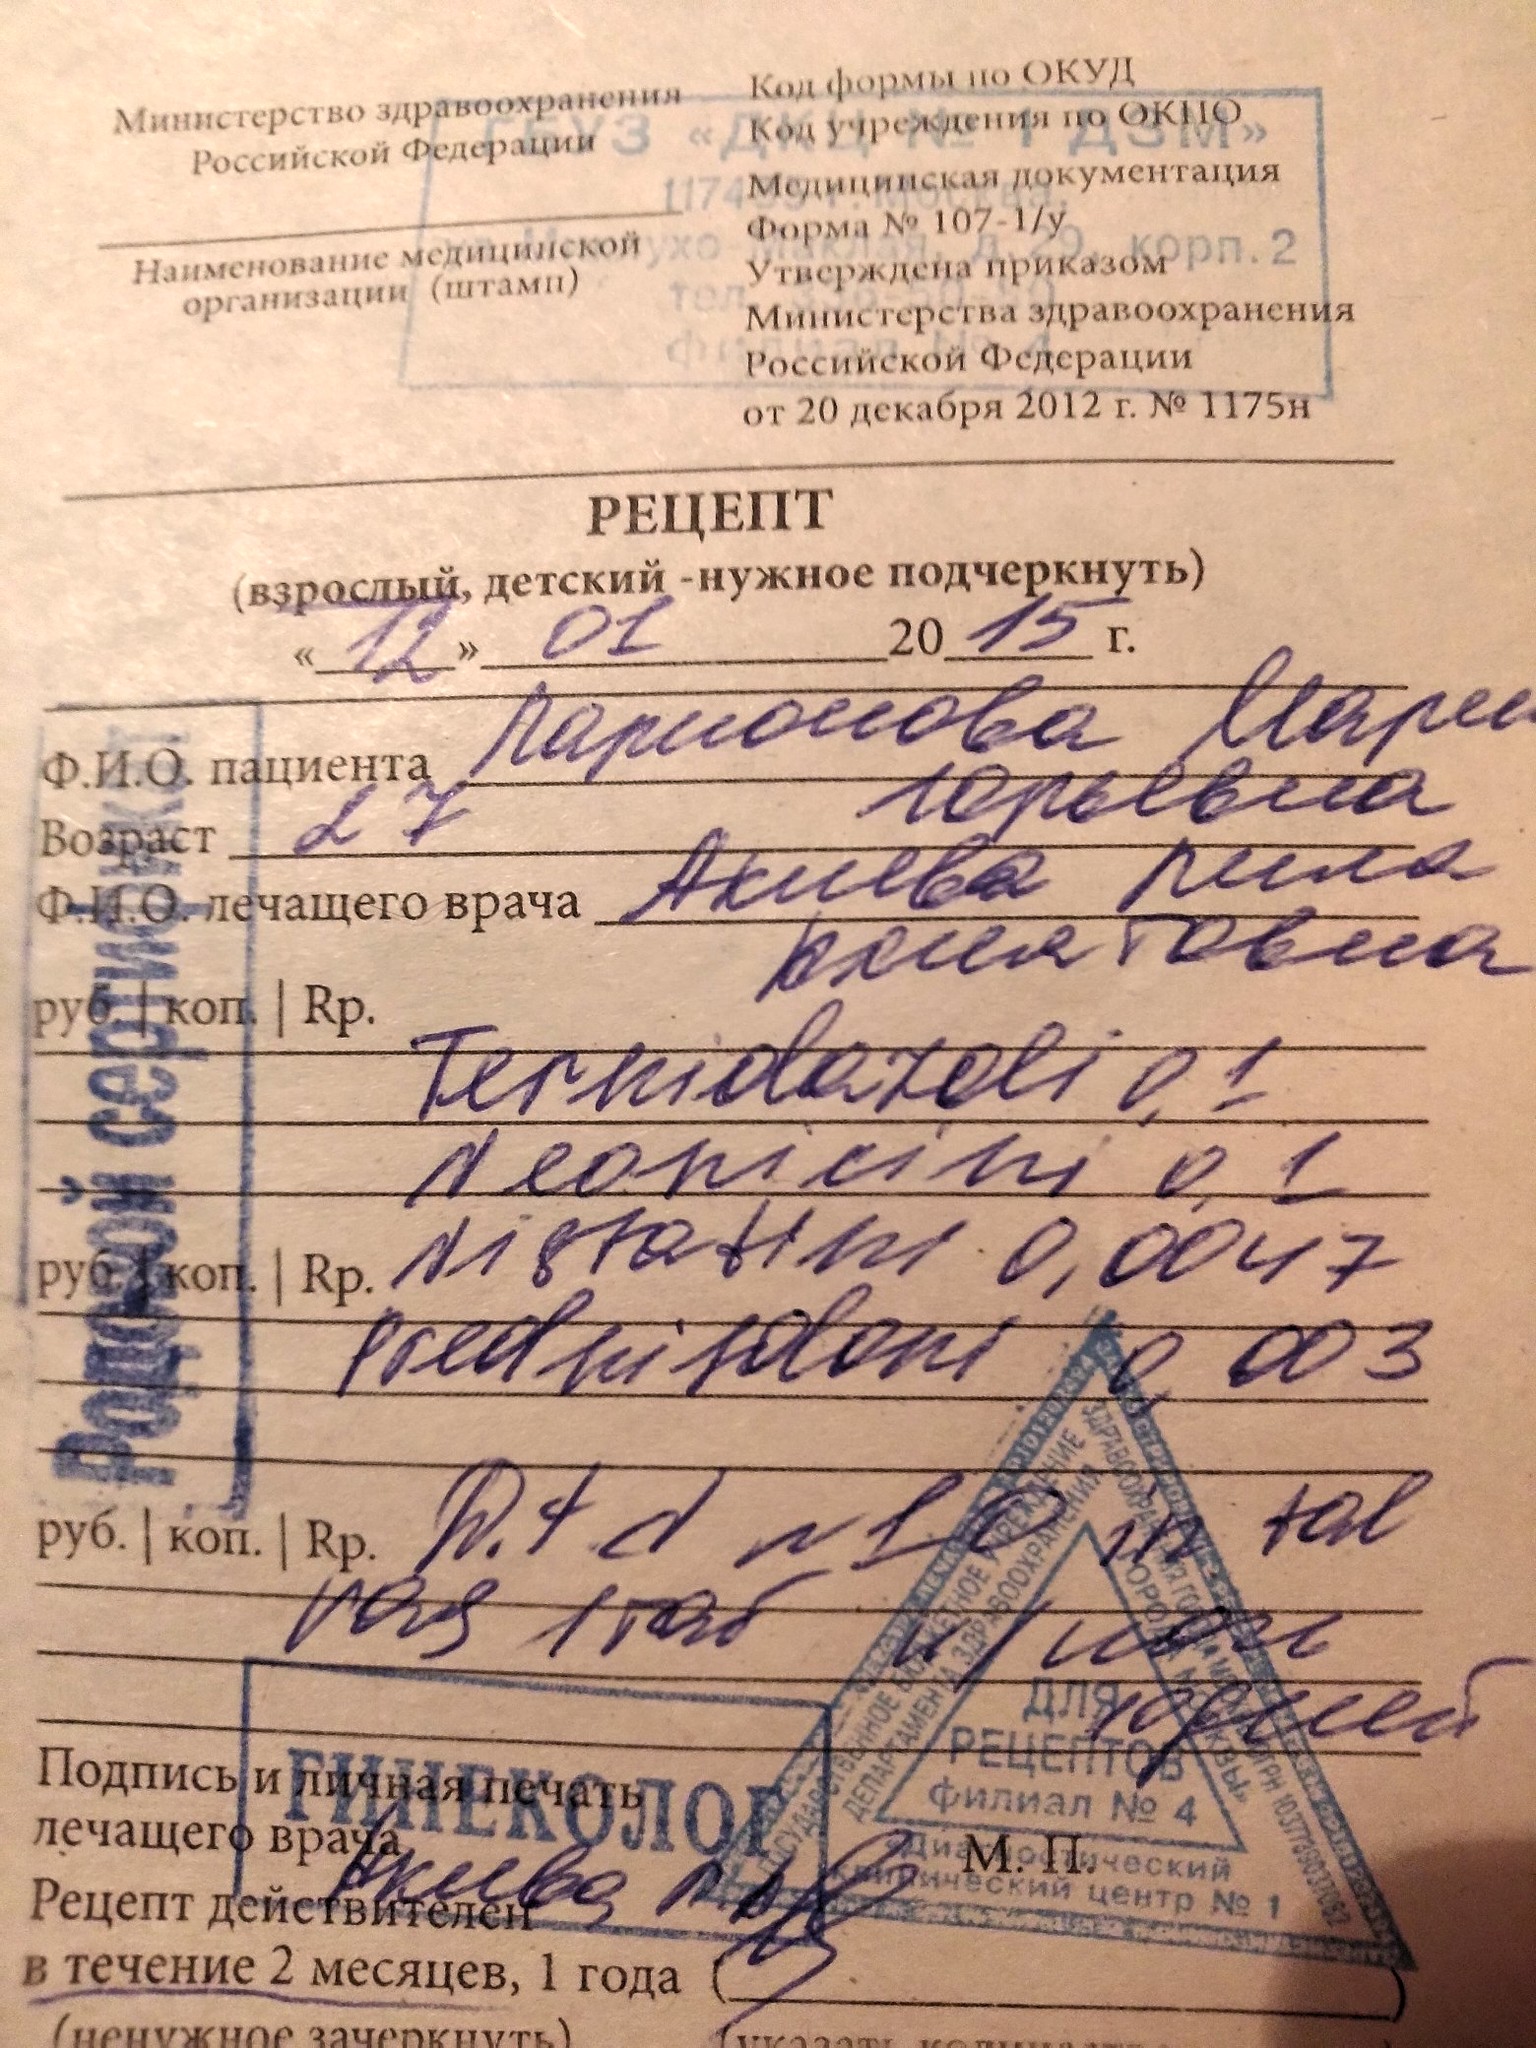 Министерство здравоохранения
Российской Федерации
Наименование медицинской
организации (штамп)
Код формы по ОКУД
Код учреждения по ОКПО
Медицинская документация
Форма № 107-1/у
Утверждена приказом
Министерства здравоохранения
Российской Федерации
от 20 декабря 2012 г. № 1175н
ГБУЗ «ДКЦ № 1 ДЗМ»
Москва,
Маклая, д. 29, корп. 2
тел.
филиал № 4
РЕЦЕПТ
(взрослый, детский -нужное подчеркнуть)
« 12 » 01 20 15 г.
Ф.И.О. пациента Ларионова Мария
Юрьевна
Возраст 27
Ф.И.О. лечащего врача Акиева Лила
руб. | коп. | Rp.
Ternidazoli 0,1
Neomicini 0,1
руб. | коп. | Rp. Nistatini 0,0047
Prednisoloni 0,003
руб. | коп. | Rp. D.t d N 10 in tab
vag 1 таб н/ночь
10 дней
Родовой сертификат
Подпись и личная печать
лечащего врача
ГИНЕКОЛОГ
М. П.
Рецепт действителен
в течение 2 месяцев, 1 года (
)
(ненужное зачеркнуть)
(указать количество
ГОСУДАРСТВЕННОЕ БЮДЖЕТНОЕ УЧРЕЖДЕНИЕ
ЗДРАВООХРАНЕНИЯ ГОРОДА МОСКВЫ
ДЕПАРТАМЕНТА ЗДРАВООХРАНЕНИЯ
ГОРОДА МОСКВЫ»
ДЛЯ
РЕЦЕПТОВ
филиал № 4
Диагностический
клинический центр № 1